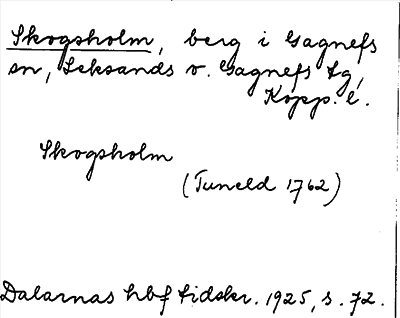 Skogsholm, berg i Gagnefs
sn, Leksands o. Gagnefs tg,
Kopp. l.
Skogsholm
(Tuneld 1762)
Dalarnas hbf tidskr. 1925, s. 72.